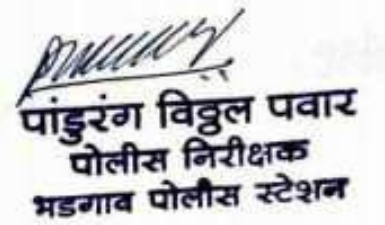 पांडुरंग विठ्ठल पवार
पोलीस निरीक्षक
भडगाव पोलीस स्टेशन